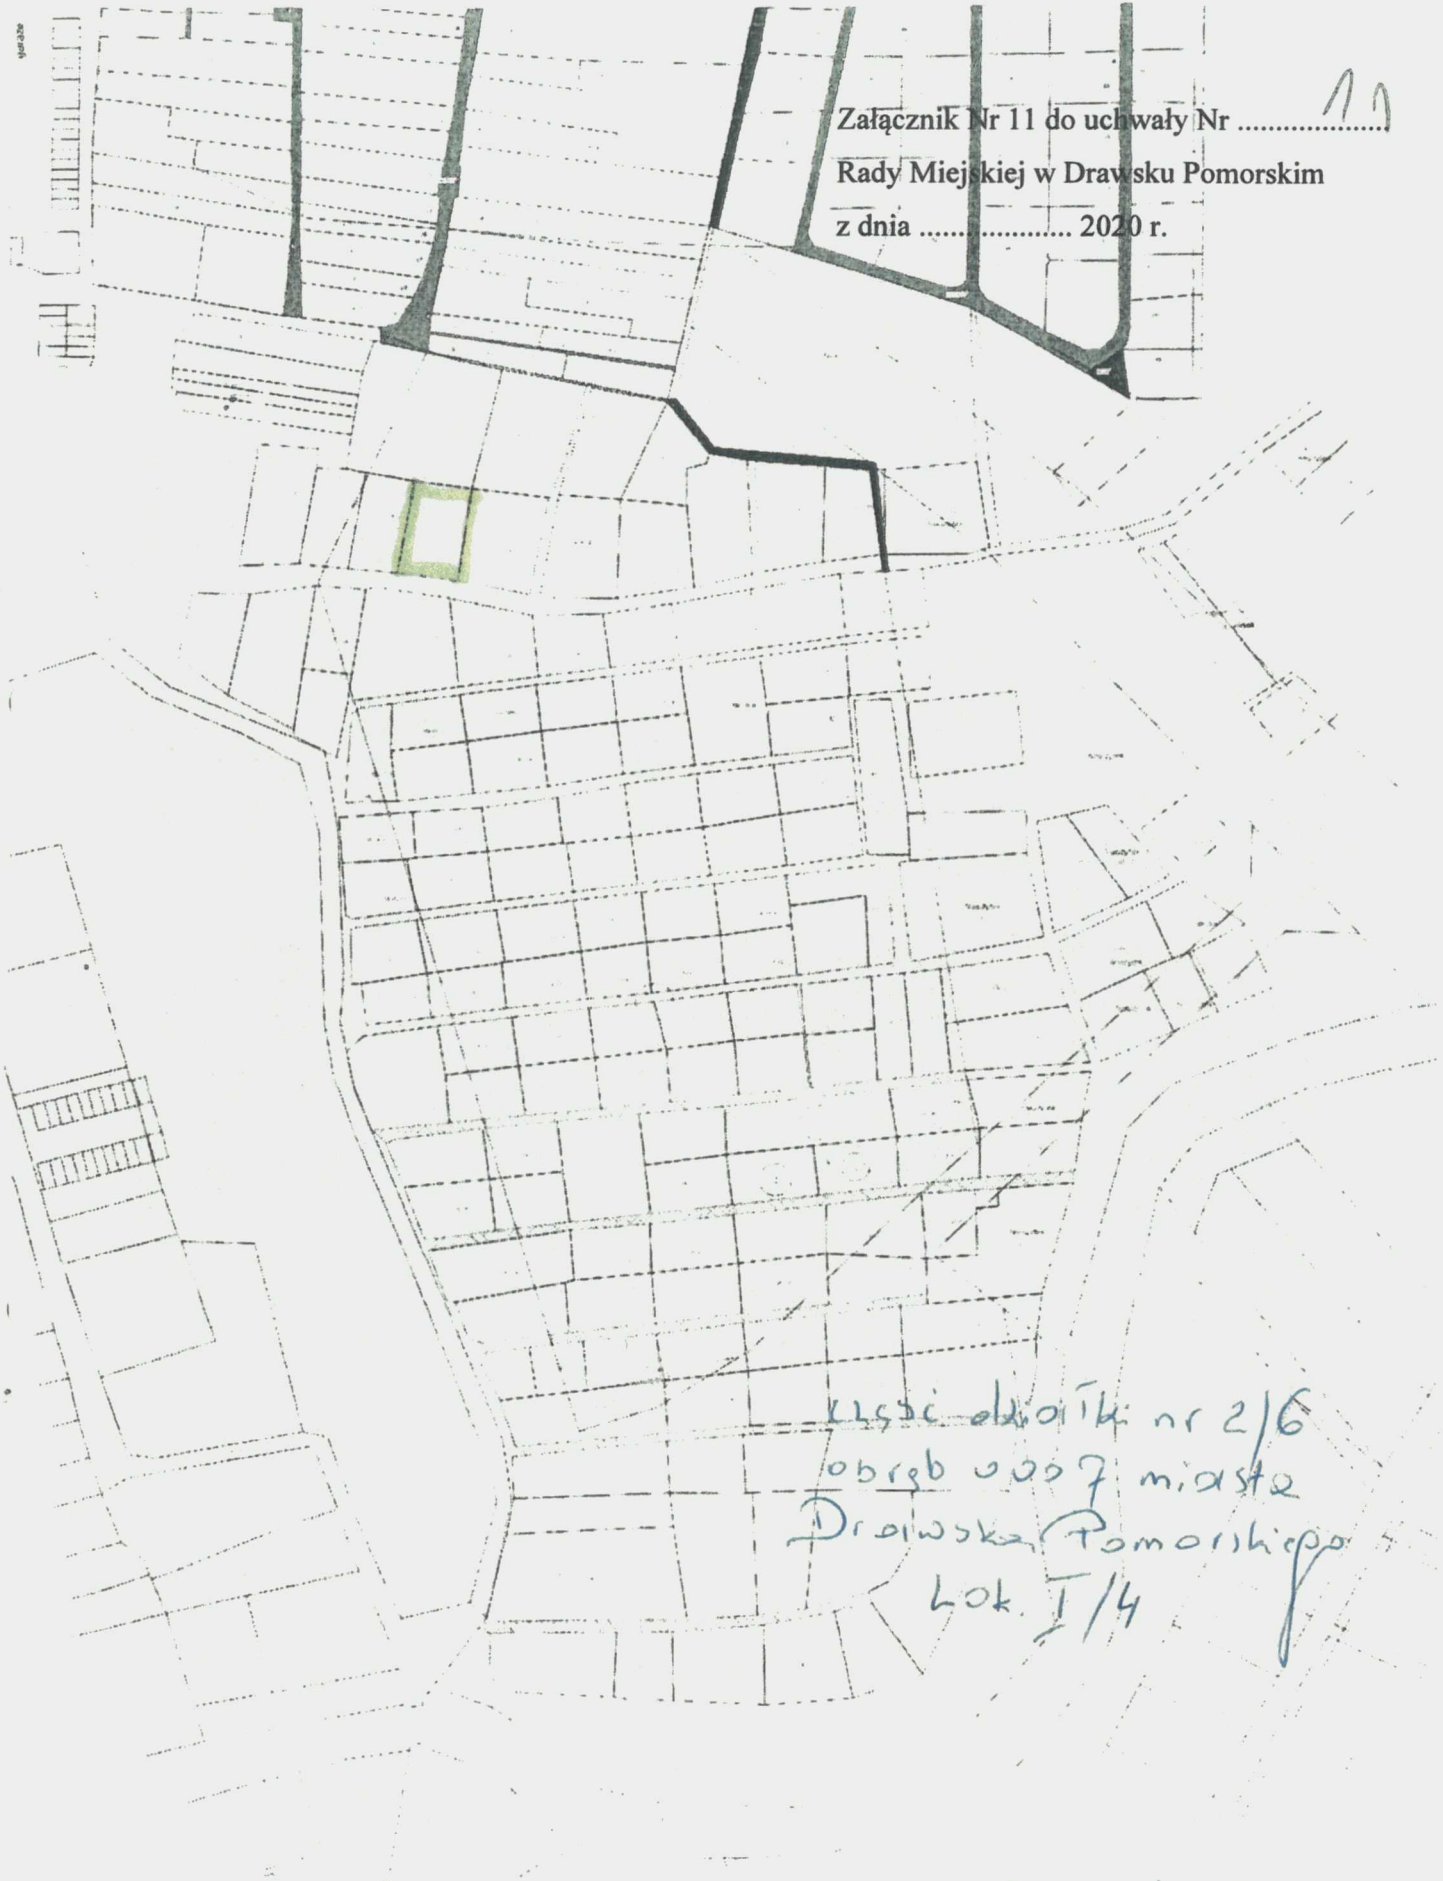 garaże
11
Załącznik Nr 11 do uchwały Nr ....................
Rady Miejskiej w Drawsku Pomorskim
z dnia .................... 2020 r.
część działki nr 2/6
obręb 0007 miasta
Drawska Pomorskiego
Lok. I/4